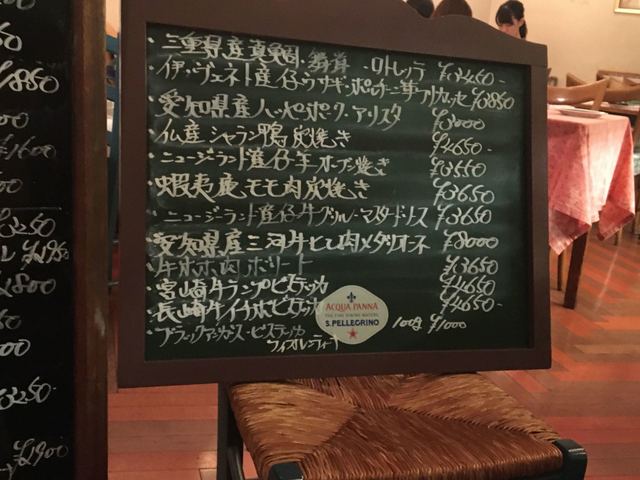 ¥3850
¥1600
¥3250
¥1950
¥1800
¥3250
¥1900
・三重県産真鯛・舞茸・ロトレッラ
・伊・ヴェネト産仔ウサギ・ポレンタ フリカッセ ¥3850
・愛知県産 ハッピーポーク・アリスタ ¥3000
・仏産シャラン鴨 炭焼き ¥4650-
・ニュージーランド産仔羊オーブン焼き ¥3550
・蝦夷鹿モモ肉炭焼き ¥3650
・ニュージーランド産仔牛グリル・マスタードソース ¥3650
・愛知県産三河牛ヒレ肉メダリオーネ ¥8000
・牛ホホ肉ボリート ¥3650
・宮崎牛ランプビステッカ ¥4650
・長崎牛イチボビステッカ ¥4650-
・ブラックアンガス・ビステッカ 100g ¥1000
フィオレンティーナ
ACQUA PANNA
THE FINE DINING WATERS
S.PELLEGRINO